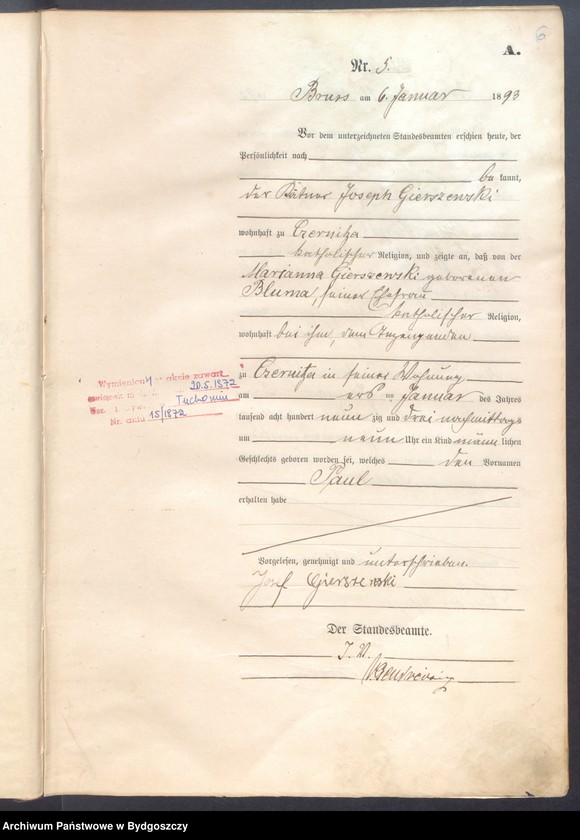 6
A.
Nr. 5.
Bruss am 6. Januar 1893
Vor dem unterzeichneten Standesbeamten erschien heute, der
Persönlichkeit nach
be kannt,
der Kätner Joseph Gierszewski
wohnhaft zu Czernitza
katholischer Religion, und zeigte an, daß von der
Marianna Gierszewski geborenen
Bluma, seiner Ehefrau
katholischer Religion,
wohnhaft bei ihm, dem Anzeigenden
zu Czernitza in seiner Wohnung
am ersten Januar des Jahres
tausend acht hundert neun zig und drei nachmittags
um neun Uhr ein Kind männ lichen
Geschlechts geboren worden sei, welches den Vornamen
Paul
erhalten habe
Vorgelesen, genehmigt und unterschrieben.
Josef Gierszewski
Der Standesbeamte.
I. V.
Wymieniony w akcie zawarł
związek m 20.5.1872
Tuchomin
Nr. aktu 15/1872
Archiwum Państwowe w Bydgoszczy